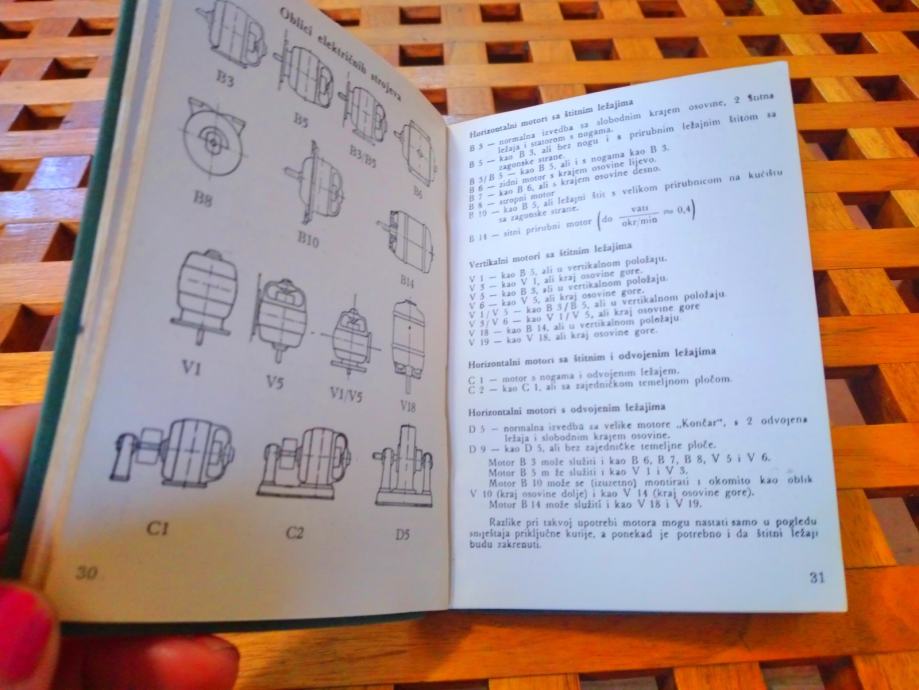 Oblici električnih strojeva
B3
B5
B3/B5
B6
B8
B10
B14
V1
V5
V1/V5
V18
C1
C2
D5
30
Horizontalni motori sa štitnim ležajima
B 3 — normalna izvedba sa slobodnim krajem osovine, 2 štitna
ležaja i statorom s nogama.
B 5 — kao B 3, ali bez nogu i s prirubnim ležajnim štitom sa
zagonske strane.
B 3/B 5 — kao B 5, ali i s nogama kao B 3.
B 6 — zidni motor s krajem osovine lijevo.
B 7 — kao B 6, ali s krajem osovine desno.
B 8 — stropni motor
B 10 — kao B 5, ali ležajni štit s velikom prirubnicom na kućištu
sa zagonske strane.
B 14 — sitni prirubni motor (do vati / okr/min = 0,4)
Vertikalni motori sa štitnim ležajima
V 1 — kao B 5, ali u vertikalnom položaju.
V 3 — kao V 1, ali kraj osovine gore.
V 5 — kao B 3, ali u vertikalnom položaju.
V 6 — kao V 5, ali kraj osovine gore.
V 1/V 5 — kao B 3/B 5, ali u vertikalnom položaju
V 3/V 6 — kao V 1/V 5, ali kraj osovine gore
V 18 — kao B 14, ali u vertikalnom položaju.
V 19 — kao V 18, ali kraj osovine gore.
Horizontalni motori sa štitnim i odvojenim ležajima
C 1 — motor s nogama i odvojenim ležajem.
C 2 — kao C 1, ali sa zajedničkom temeljnom pločom.
Horizontalni motori s odvojenim ležajima
D 5 — normalna izvedba za velike motore „Končar“, s 2 odvojena
ležaja i slobodnim krajem osovine.
D 9 — kao D 5, ali bez zajedničke temeljne ploče.
Motor B 3 može služiti i kao B 6, B 7, B 8, V 5 i V 6.
Motor B 5 m že služiti i kao V 1 i V 3.
Motor B 10 može se (izuzetno) montirati i okomito kao oblik
V 10 (kraj osovine dolje) i kao V 14 (kraj osovine gore).
Motor B 14 može služiti i kao V 18 i V 19.
Razlike pri takvoj upotrebi motora mogu nastati samo u pogledu
smještaja priključne kutije, a ponekad je potrebno i da štitni ležaji
budu zakrenuti.
31